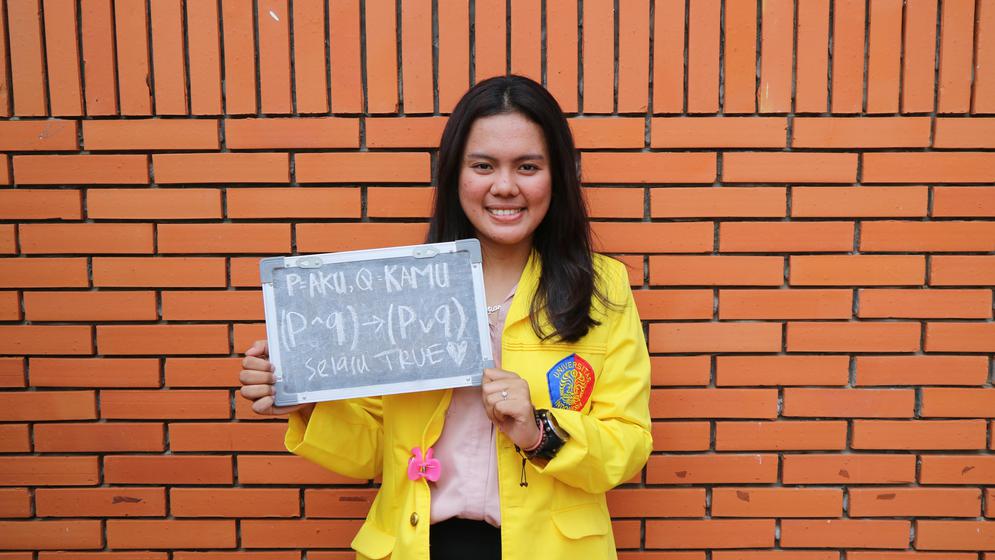 P=AKU, Q=KAMU
(P^q)→(Pvq)
selalu TRUE♡
UNIVERSITAS